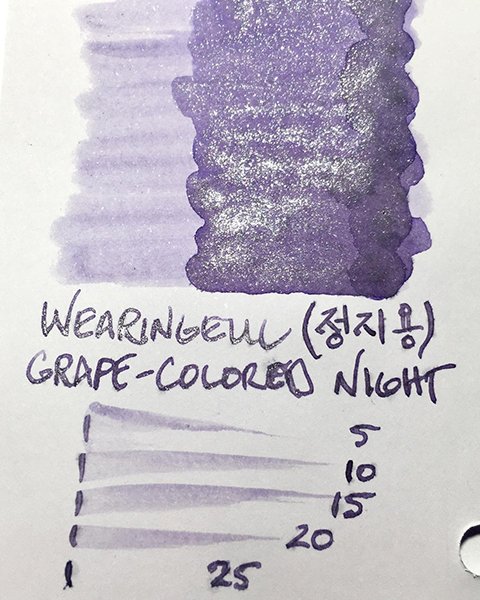 WEARINGEUL (정지용)
GRAPE-COLORED NIGHT
5
10
15
20
25